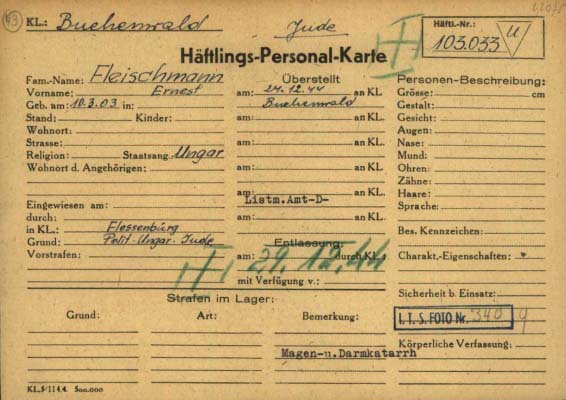 43 KL.: Buchenwald Jude
Häftl.-Nr.:
103.033 U
Häftlings-Personal-Karte
Fam.-Name: Fleischmann Überstellt Personen-Beschreibung:
Vorname: Ernest am: 24.12.44 an KL. Grösse: cm
Geb. am: 10.3.03 in: Buchenwald Gestalt:
Stand: Kinder: am: an KL. Gesicht:
Wohnort: Augen:
Strasse: am: an KL. Nase:
Religion: Staatsang. Ungar Mund:
Wohnort d. Angehörigen: am: an KL. Ohren:
Zähne:
am: an KL. Haare:
Eingewiesen am: Listm.Amt-D- Sprache:
durch: am: an KL.
in KL.: Flossenbürg Bes. Kennzeichen:
Grund: Polit-Ungar-Jude Entlassung:
Vorstrafen: am: 29.12.44 durch KL.: Charakt.-Eigenschaften:
mit Verfügung v.:
Strafen im Lager: Sicherheit b. Einsatz:
Grund: Art: Bemerkung: I.T.S. FOTO Nr. 340
Körperliche Verfassung:
Magen-u.Darmkatarrh
KL.5/11.4.4. 500.000